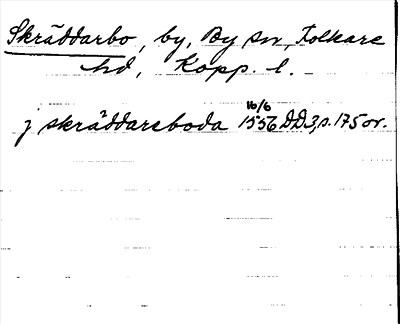 Skräddarbo, by, By sn, Folkare
hd, Kopp. l.
j skräddareboda 16/6 1556 DD3, s. 175 or.